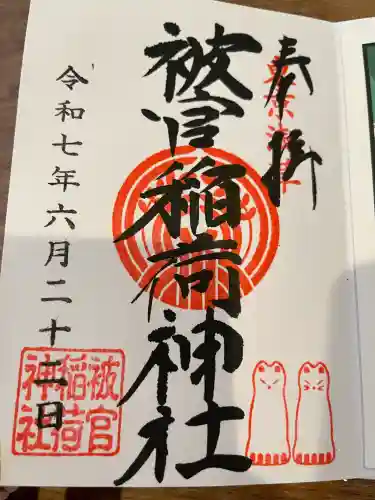 奉拝
東京浅草
被官稲荷神社
令和七年六月二十二日
被官稲荷神社